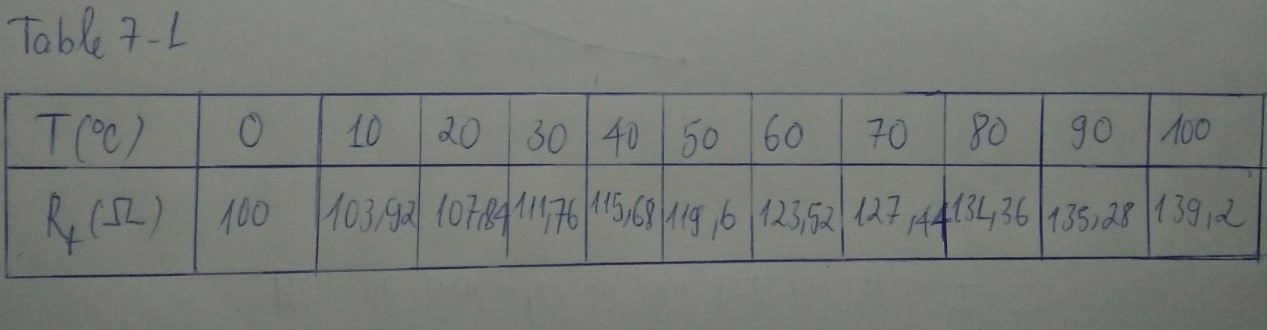 Table 7-1
T(°C) 0 10 20 30 40 50 60 70 80 90 100
Rt(Ω) 100 103,92 107,84 111,76 115,68 119,6 123,52 127,44 131,36 135,28 139,2